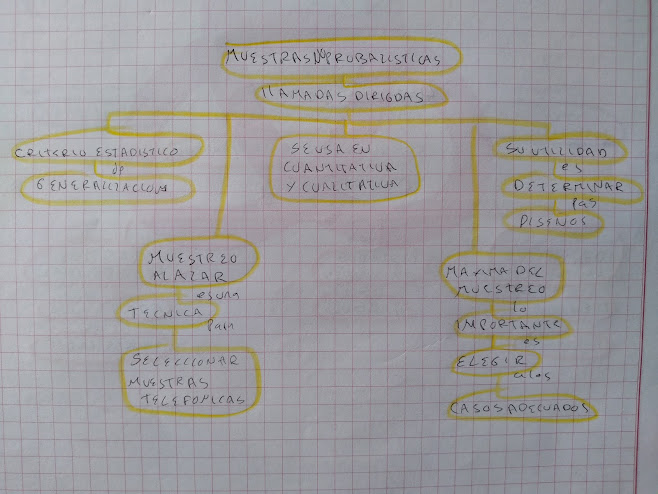 MUESTRAS NO PROBALISTICAS
LLAMADAS DIRIGDAS
CRITERIO ESTADISTICO
DE
GENERALIZACION
SE USA EN
CUANTITATIVA
Y CUALITATIVA
SU UTILIDAD
es
DETERMINAR
DISEÑOS
MUESTREO
AL AZAR
es una
TECNICA
para
SELECCIONAR
MUESTRAS
TELEFONICAS
MAXIMA DEL
MUESTREO
lo
IMPORTANTE
es
ELEGIR
a los
CASOS ADECUADOS